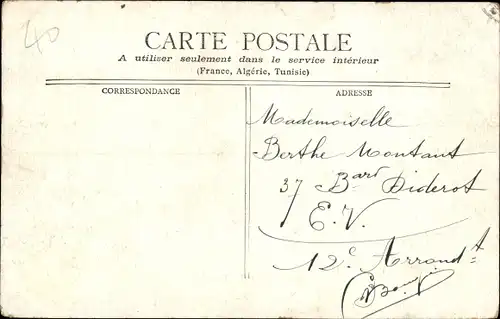 40
CARTE POSTALE
A utiliser seulement dans le service intérieur
(France, Algérie, Tunisie)
CORRESPONDANCE
ADRESSE
Mademoiselle
Berthe Montant
37 Bard Diderot
E.V.
12e Arrondt